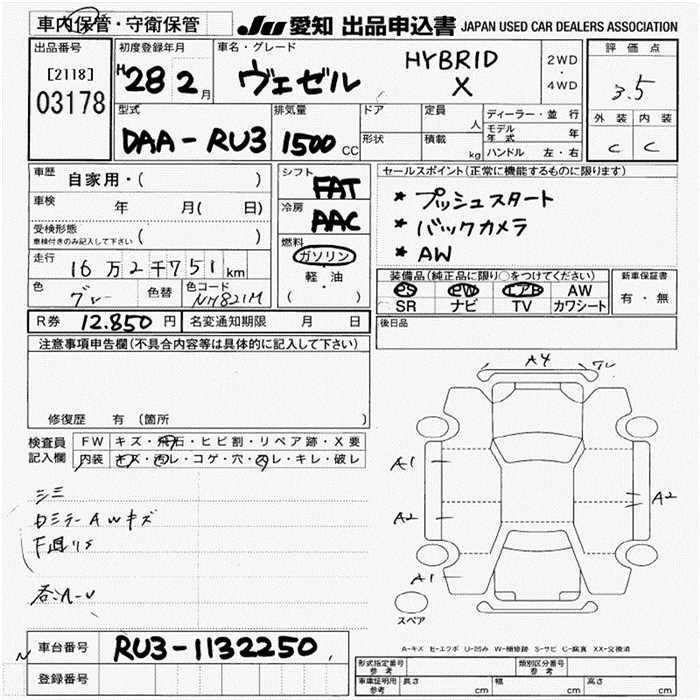 車内保管・守衛保管
JU 愛知 出品申込書 JAPAN USED CAR DEALERS ASSOCIATION
出品番号
[2118]
03178
初度登録年月
H28 2月
車名・グレード
ヴェゼル
HYBRID
X
2WD
・
4WD
評価点
3.5
外装 内装
C C
型式
DAA-RU3
排気量
1500 CC
ドア
形状
定員
人
積載
kg
ディーラー・並行
モデル年式 年
ハンドル 左・右
車歴 自家用・( )
車検 年 月( 日)
受検形態
車検付きのみ記入して下さい ( )
走行 16万2千751km
色 グレー 色替 色コード NH821M
シフト
FAT
冷房
AAC
燃料
ガソリン
軽・油
( )
セールスポイント(正常に機能するものに限ります)
* プッシュスタート
* バックカメラ
* AW
装備品(純正品に限り○をつけてください)
PS PW エアB AW
SR ナビ TV カワシート
新車保証書
有・無
後日品
R券 12.850円 名変通知期限 月 日
注意事項申告欄(不具合内容等は具体的に記入して下さい)
修復歴 有 (箇所 )
検査員記入欄
FW キズ・飛石・ヒビ割・リペア跡・X要
内装 キズ・汚レ・コゲ・穴・スレ・キレ・破レ
ミラーAWキズ
下廻りS
A4
A1
A2
A2
A1
スペア
A-キズ E-エクボ U-凹み W-補修跡 S-サビ C-腐食 XX-交換済
車台番号 RU3-1132250
登録番号
形式指定番号
参考
類別区分番号
参考
車庫証明用
参考
長さ cm 幅 cm 高さ cm